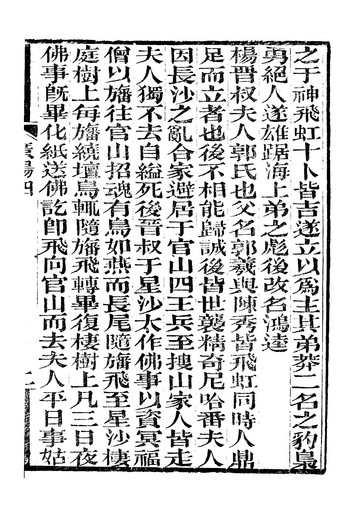 之于神飛虹十卜皆吉遂立以為主其弟莽二名之豹梟
勇絕人遂雄踞海上弟之彪後改名鴻逵
楊晋叔夫人郭氏也父名郭羲與陳秀皆飛虹同時人鼎
足而立者也後不相能歸誠後皆世襲精奇尼哈番夫人
因長沙之亂合家避居于官山四王兵至搜山家人皆走
夫人獨不去自縊死後晋叔于星沙太作佛事以資冥福
僧以旛往官山招魂有鳥如燕而長尾隨旛飛至星沙棲
庭樹上每旛繞壇鳥輒隨旛飛轉畢復棲樹上凡三日夜
佛事旣畢化紙送佛訖卽飛向官山而去夫人平日事姑
廣陽四